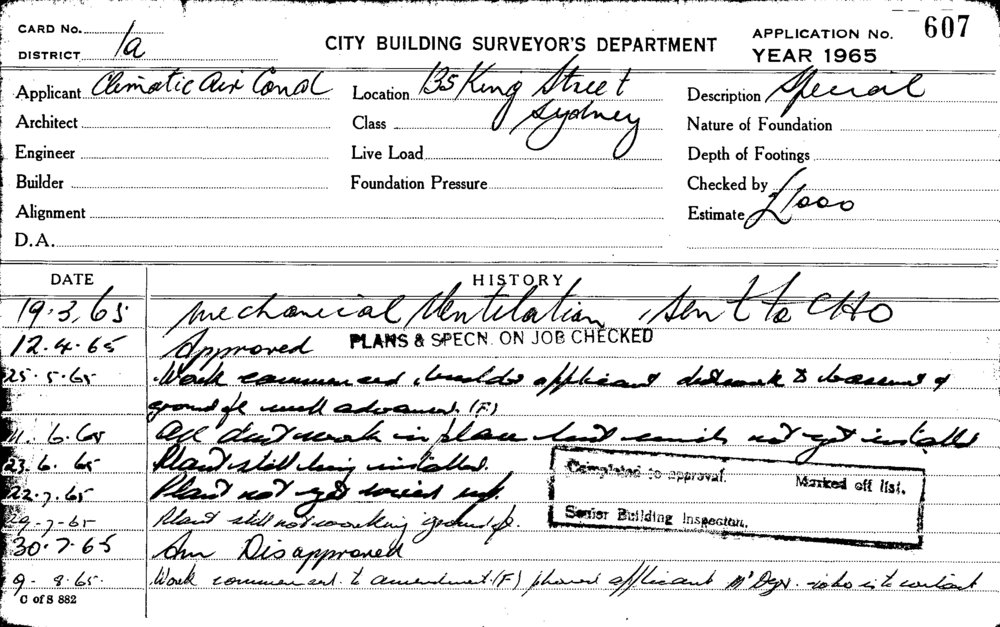 CARD No.
DISTRICT 1a
CITY BUILDING SURVEYOR'S DEPARTMENT
APPLICATION No. 607
YEAR 1965
Applicant Climatic Air Cond
Location 135 King Street
Sydney
Description Special
Architect
Class
Nature of Foundation
Engineer
Live Load
Depth of Footings
Builder
Foundation Pressure
Checked by
Alignment
Estimate £1000
D.A.
DATE HISTORY
19.3.65 Mechanical Ventilation, Sent to CHO
12.4.65 Approved PLANS & SPECN. ON JOB CHECKED
25.5.65 Work commenced, builder applicant ductwork to basement &
ground fl. well advanced. (F)
11.6.65 All duct work in place but units not yet installed
23.6.65 Plant still being installed.
22.7.65 Plant not yet wired up.
29-7-65 Plant still not working ground fl.
30.7.65 Am Disapproved
9-8-65. Work commenced to amendment (F) phoned applicant Mr who is to contact
Completed to approval. Marked off list.
Senior Building Inspector.
C of S 882